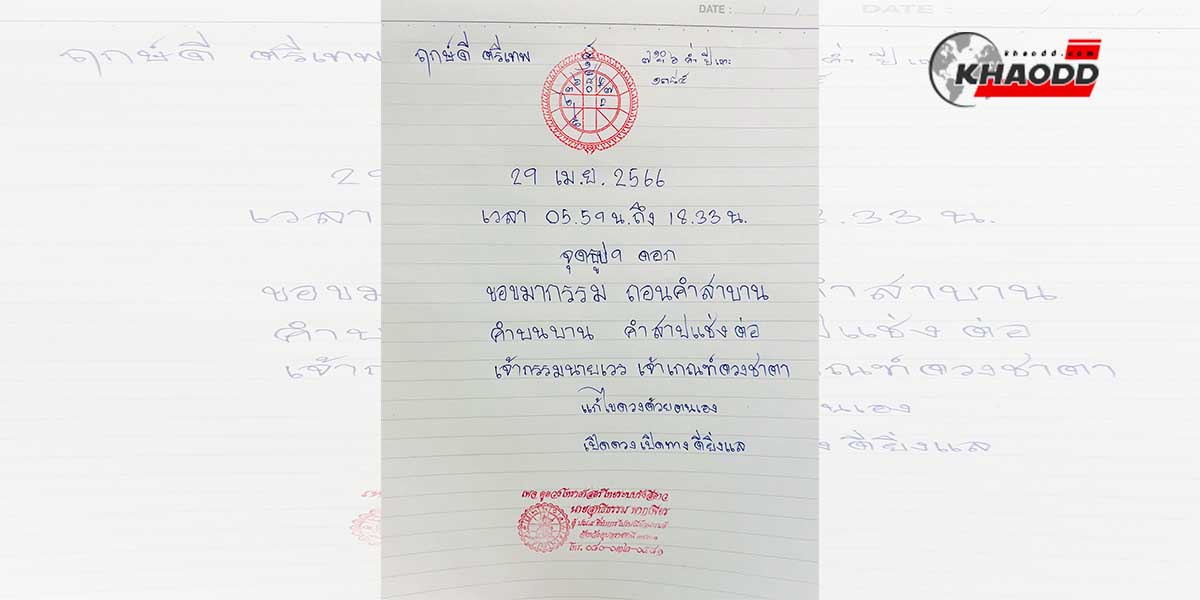 DATE :
khaodd.com
KHAODD
ฤกษ์ดี ศรีเทพ
ปีเถาะ
๑๓๘๕
29 เม.ย. 2566
เวลา 05.59 น. ถึง 18.33 น.
จุดธูป 9 ดอก
ขอขมากรรม ถอนคำสาบาน
คำบนบาน คำสาปแช่ง ต่อ
เจ้ากรรมนายเวร เจ้าเกณฑ์ดวงชาตา
แก้ไขดวงด้วยตนเอง
เปิดดวง เปิดทาง ดียิ่งแล
เพจ ดูดวงโหราศาสตร์ไทยระบบรังสีดาว